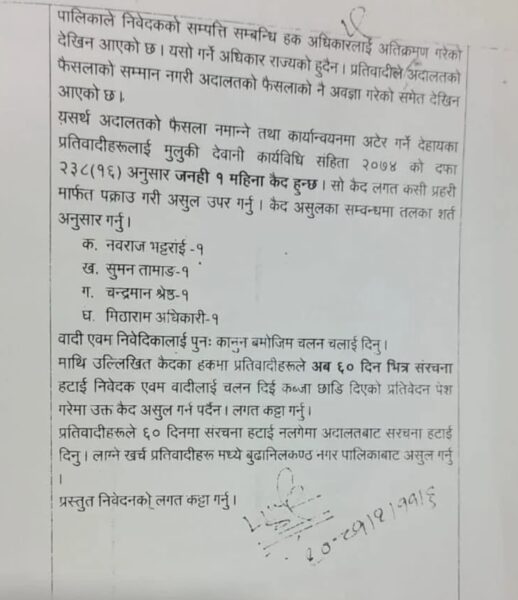 पालिकाले निवेदकको सम्पत्ति सम्बन्धि हक अधिकारलाई अतिक्रमण गरेको
देखिन आएको छ। यसो गर्ने अधिकार राज्यको हुदैन। प्रतिवादीले अदालतको
फैसलाको सम्मान नगरी अदालतको फैसलाको नै अवज्ञा गरेको समेत देखिन
आएको छ।
यसर्थ अदालतको फैसला नमान्ने तथा कार्यान्वयनमा अटेर गर्ने देहायका
प्रतिवादीहरूलाई मुलुकी देवानी कार्यविधि संहिता २०७४ को दफा
२३८(१६) अनुसार जनही १ महिना कैद हुन्छ। सो कैद लगत कसी प्रहरी
मार्फत पक्राउ गरी असुल उपर गर्नु। कैद असुलका सम्वन्धमा तलका शर्त
अनुसार गर्नु।
क. नवराज भट्टराई -१
ख. सुमन तामाङ-१
ग. चन्द्रमान श्रेष्ठ-१
घ. मिठाराम अधिकारी-१
वादी एवम निवेदिकालाई पुनः कानुन बमोजिम चलन चलाई दिनु।
माथि उल्लिखित कैदका हकमा प्रतिवादीहरूले अब ६० दिन भित्र संरचना
हटाई निवेदक एवम वादीलाई चलन दिई कब्जा छाडि दिएको प्रतिवेदन पेश
गरेमा उक्त कैद असुल गर्न पर्दैन। लगत कट्टा गर्नु।
प्रतिवादीहरूले ६० दिनमा संरचना हटाई नलगेमा अदालतबाट सरचना हटाई
दिनु। लाग्ने खर्च प्रतिवादीहरू मध्ये बुढानिलकण्ठ नगर पालिकाबाट असुल गर्नु
।
प्रस्तुत निवेदनको लगत कट्टा गर्नु।